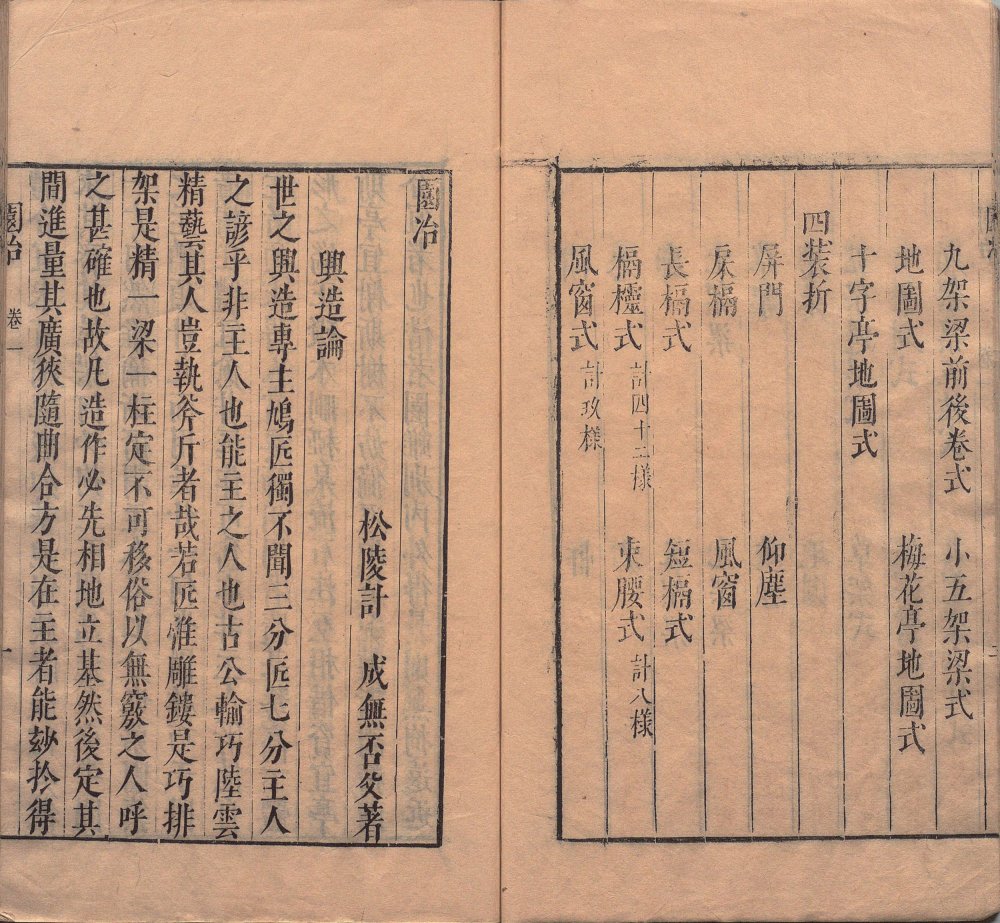 九架梁前後卷式 小五架梁式
地圖式 梅花亭地圖式
十字亭地圖式
四裝折
屏門 仰塵
床槅 風窗
長槅式 短槅式
槅櫺式 計四十二樣 束腰式 計八樣
風窗式 計玖樣
園冶
興造論
松陵計 成無否父著
世之興造專主鳩匠獨不聞三分匠七分主人
之諺乎非主人也能主之人也古公輸巧陸雲
精藝其人豈執斧斤者哉若匠惟雕鏤是巧排
架是精一梁一柱定不可移俗以無竅之人呼
之甚確也故凡造作必先相地立基然後定其
間進量其廣狹隨曲合方是在主者能玅於得
園冶 卷一 一